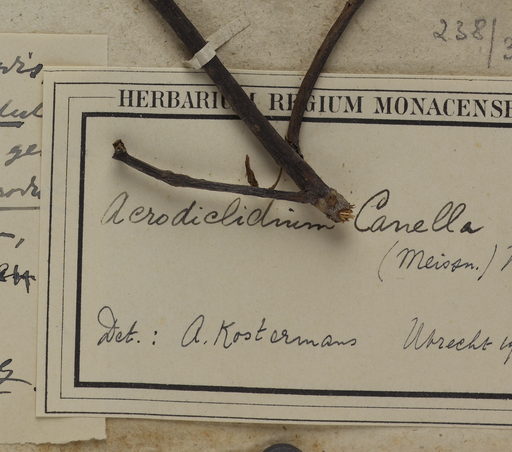 238/3
HERBARIUM REGIUM MONACENSE
Acrodiclidium Canella
(Meissn.)
Det.: A. Kostermans Utrecht